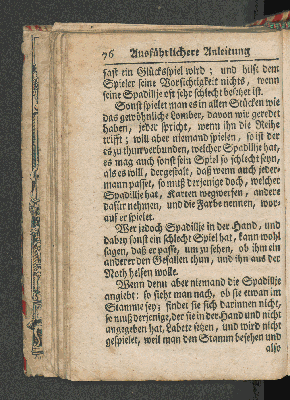 76 Ausführlichere Anleitung
fast ein Glücksspiel wird; und hilft dem
Spieler seine Vorsichtigkeit nichts, wenn
seine Spadillje oft sehr schlecht besetzet ist.
Sonst spielet man es in allen Stücken wie
das gewöhnliche Lomber, davon wir geredet
haben, jeder spricht, wenn ihn die Reihe
trifft; will aber niemand spielen, so ist der
es zu thun verbunden, welcher Spadillje hat,
es mag auch sonst sein Spiel so schlecht seyn,
als es will, dergestalt, daß wenn auch jeder-
mann passet, so muß derjenige doch, welcher
Spadillje hat, Karten wegwerfen, andere
dafür nehmen, und die Farbe nennen, wor-
auf er spielet.
Wer jedoch Spadillje in der Hand, und
dabey sonst ein schlecht Spiel hat, kann wohl
sagen, daß er passe, um zu sehen, ob ihm ein
anderer den Gefallen thun, und ihn aus der
Noth helfen wolle.
Wenn denn aber niemand die Spadillje
angiebt: so sieht man nach, ob sie etwan im
Stamme sey; findet sie sich darinnen nicht,
so muß derjenige, der sie in der Hand und nicht
angegeben hat, Labete setzen, und wird nicht
gespielet, weil man den Stamm besehen und
also